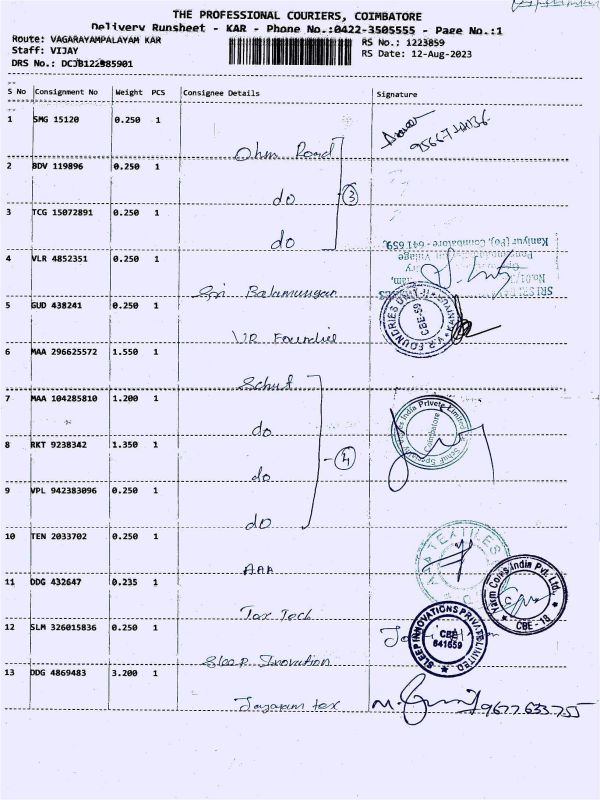 THE PROFESSIONAL COURIERS, COIMBATORE
Delivery Runsheet - KAR - Phone No.:0422-3505555 - Page No.:1
Route: VAGARAYAMPALAYAM KAR
RS No.: 1223859
Staff: VIJAY
RS Date: 12-Aug-2023
DRS No.: DCJB122985901
S No Consignment No Weight PCS Consignee Details Signature
1 SMG 15120 0.250 1
Ohm Road
2 BDV 119896 0.250 1
do
3
3 TCG 15072891 0.250 1
do
Kaniyur (Po), Coimbatore - 641 659.
4 VLR 4852351 0.250 1
Sri Balamurugan
5 GUD 438241 0.250 1
V.R. FOUNDRIES UNIT-II KANIYUR
CBE-59
VR Foundrie
6 MAA 296625572 1.550 1
Schuf
7 MAA 104285810 1.200 1
do
Schuf Speciality Valves India Private Limited
Coimbatore
8 RKT 9238342 1.350 1
do
4
9 VPL 942383096 0.250 1
do
10 TEN 2033702 0.250 1
AAA
AAA TEXTILES
11 DDG 432647 0.235 1
Tex Tech
Narm Cores India Pvt. Ltd.
CBE - 18
12 SLM 326015836 0.250 1
Sleep Innovation
SLEEP INNOVATIONS PRIVATE LIMITED
CBE
641659
13 DDG 4869483 3.200 1
Jayaram tex
9677633755